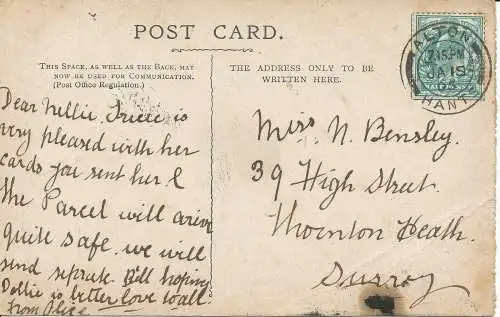 POST CARD.
THIS SPACE, AS WELL AS THE BACK, MAY
NOW BE USED FOR COMMUNICATION.
(Post Office Regulation.)
THE ADDRESS ONLY TO BE
WRITTEN HERE.
ALTON
7.15.PM
JA 19
HANTS
HALFPENNY
Dear Nellie, is
very pleased with her
cards you sent her &
the Parcel will arive
quite safe. we will
send seprate. Bill hoping
Dollie is better love to all
from Alice
Miss N. Bensley.
39 High Street.
Thornton Heath.
Surrey